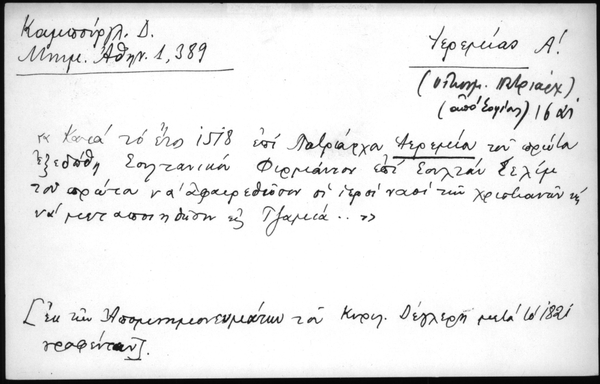 Καμπούργλ. Δ.
Μνημ. Ἀθην. 1, 389
Ἱερεμείας Α!
(οἰκουμ. πατριάρχ)
(ἀπό Σοφίας) 16 αἰ
"Κατά τό ἔτος 1518 ἐπί Πατριάρχα Ἱερεμεία τοῦ πρώτου
ἐξεδόθη Σουλτανικόν Φιρμάνιον ἐπί Σουλτάν Σελίμ
τοῦ πρώτου νά ἀφαιρεθῶσιν οἱ ἱεροί ναοί τῶν χριστιανῶν καί
νά μεταποιηθῶσιν εἰς Τζαμιά..."
[ἐκ τῶν Ἀπομνημονευμάτων τοῦ Κυρίλ. Δέγλερη μετά τό 1821
γραφέντων].